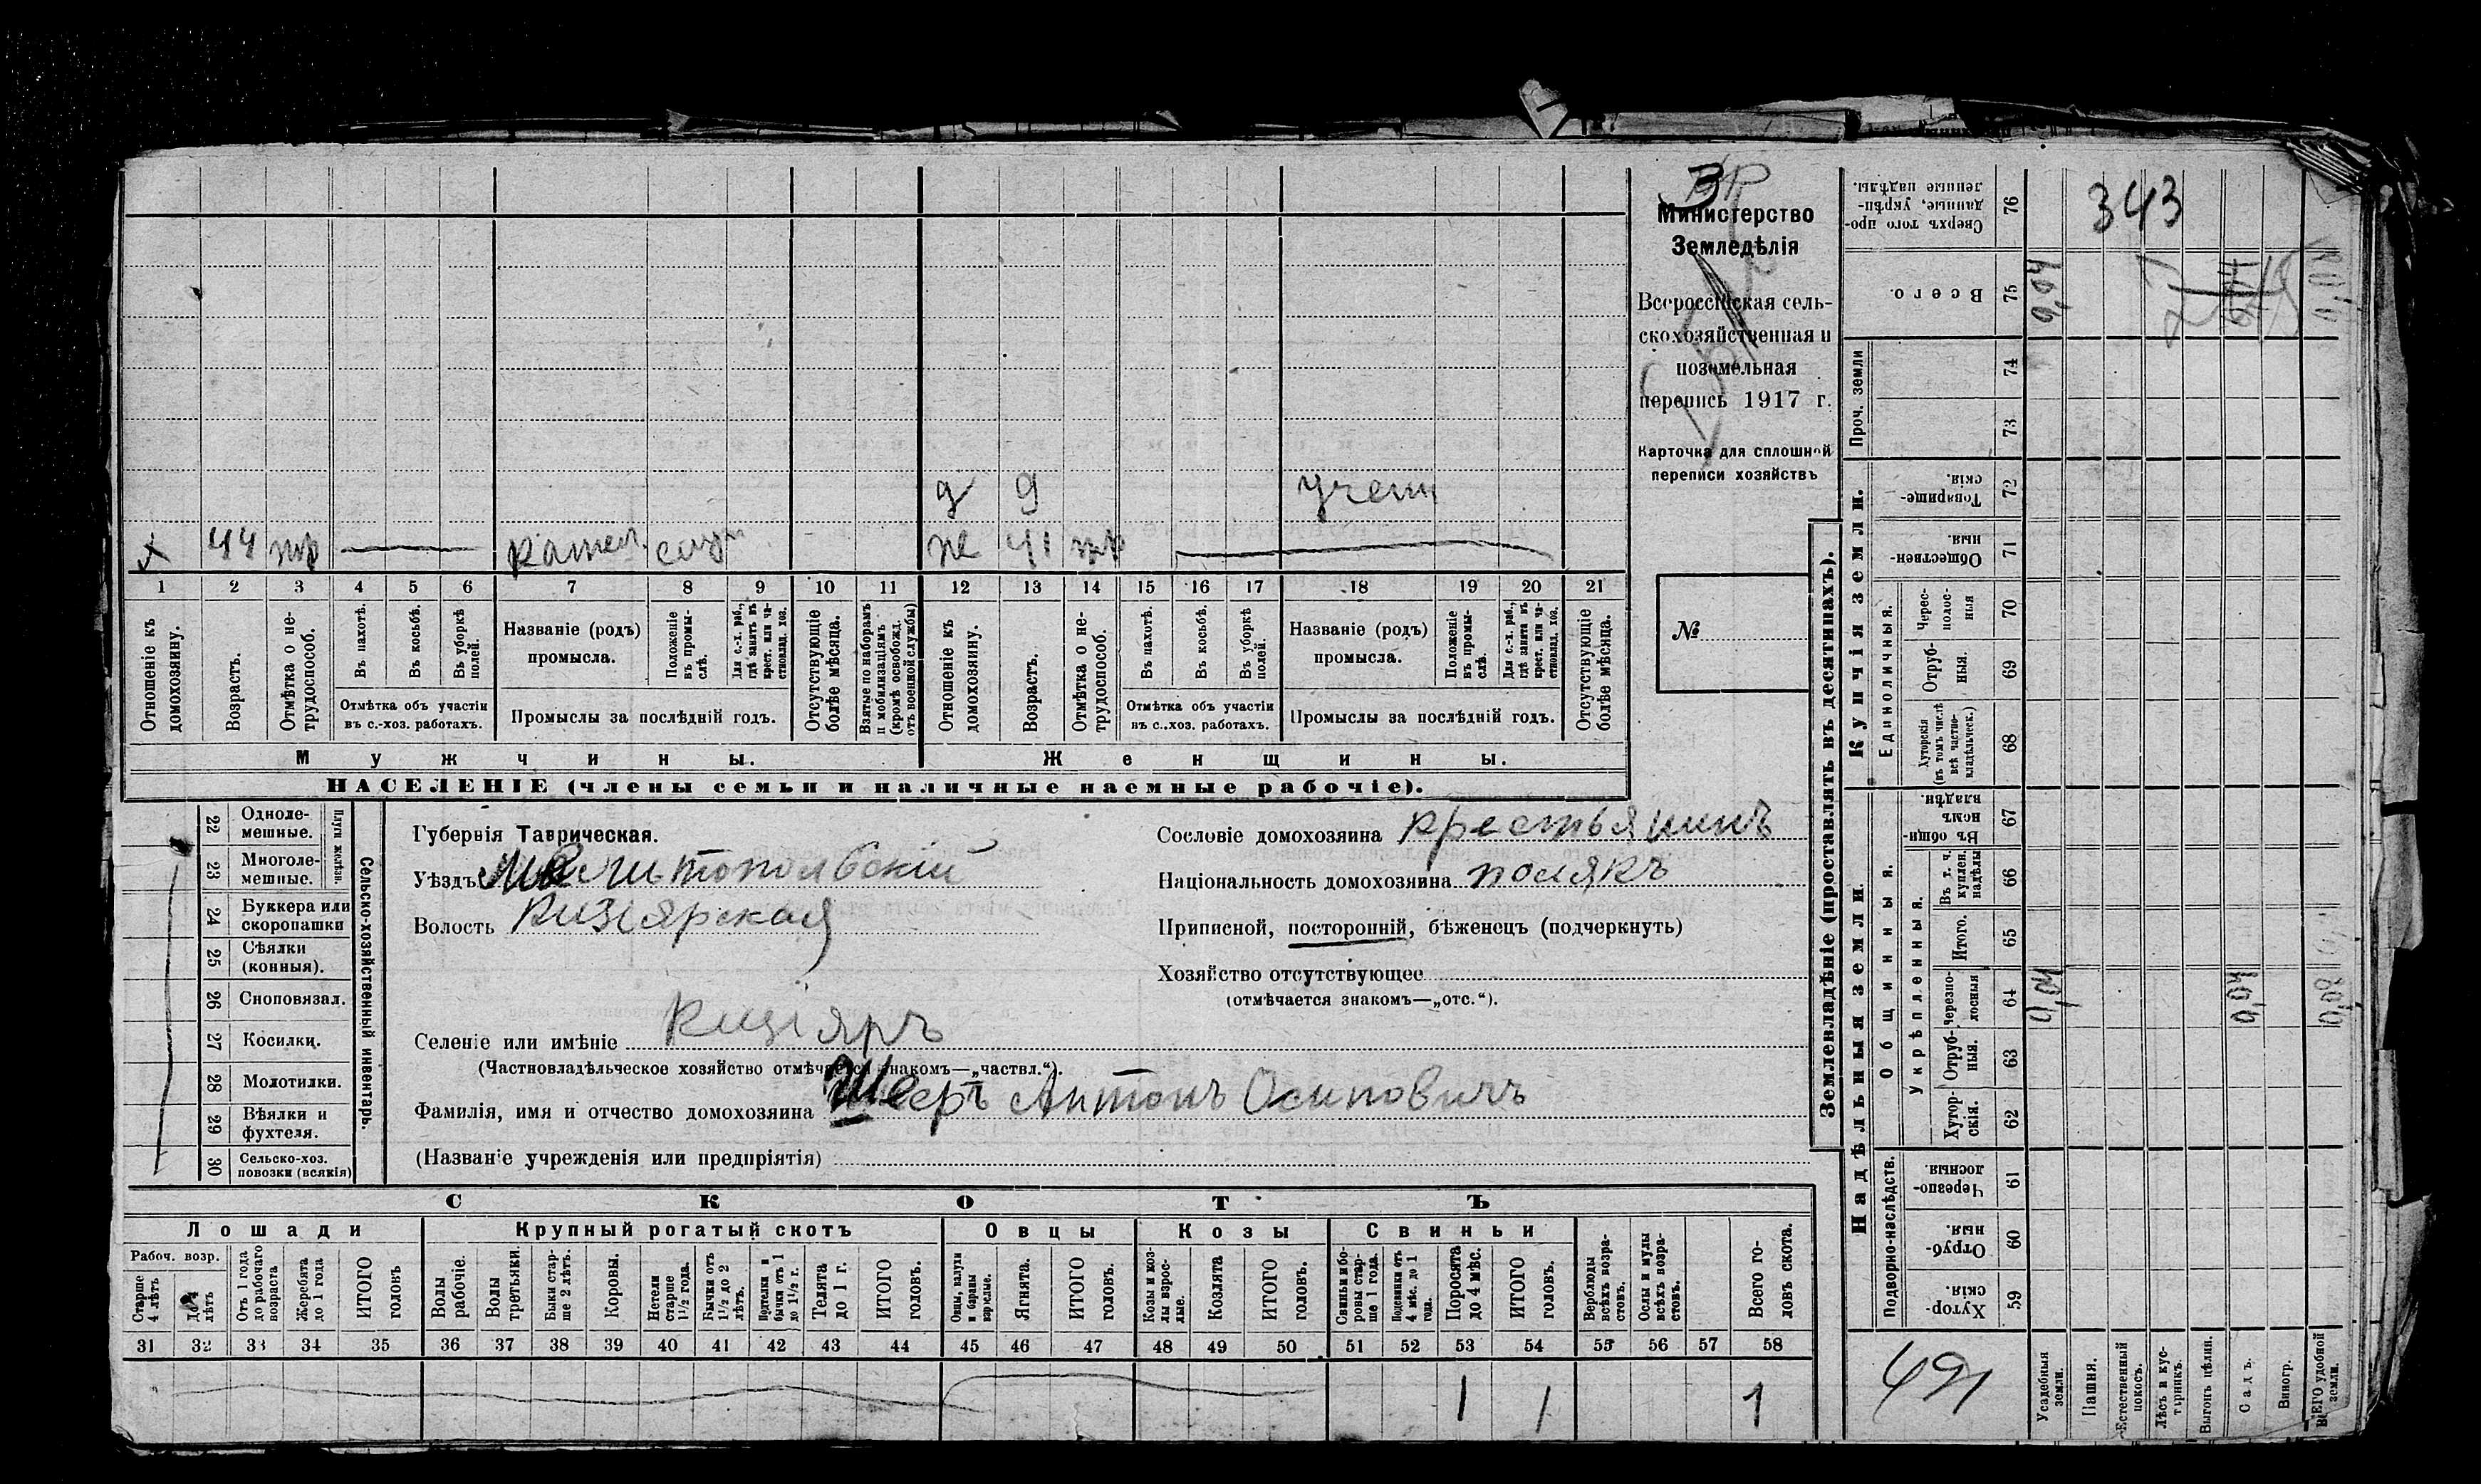 343
Министерство
Земледѣлія
Всероссійская сель-
скохозяйственная и
поземельная
перепись 1917 г.
Карточка для сплошной
переписи хозяйствъ
№
д 9 учени
х 44 тр
же 41 тр
1 2 3 4 5 6 7 8 9 10 11 12 13 14 15 16 17 18 19 20 21
Отношеніе къ домохозяину.
Возрастъ.
Отмѣтка о не-трудоспособ.
Въ пахотѣ.
Въ косьбѣ.
Въ уборкѣ полей.
Отмѣтка объ участіи
въ с.-хоз. работахъ.
Названіе (родъ)
промысла.
Положеніе въ промы-слѣ.
Для с.-х. раб., гдѣ занятъ въ крест. или ча-стновлад. хоз.
Промыслы за послѣдній годъ.
Отсутствующіе болѣе мѣсяца.
Взятые по наборамъ и мобилизаціямъ (кромѣ освобожд. отъ военной службы)
Отношеніе къ домохозяину.
Возрастъ.
Отмѣтка о не-трудоспособ.
Въ пахотѣ.
Въ косьбѣ.
Въ уборкѣ полей.
Отмѣтка объ участіи
въ с.-хоз. работахъ.
Названіе (родъ)
промысла.
Положеніе въ промы-слѣ.
Для с.-х. раб., гдѣ занята въ крест. или ча-стновлад. хоз.
Промыслы за послѣдній годъ.
Отсутствующіе болѣе мѣсяца.
Мужчины.
Женщины.
НАСЕЛЕНІЕ (члены семьи и наличные наемные рабочіе).
Сельско-хозяйственный инвентарь.
Плуги желѣзн.
22 Одноле-мешные.
23 Многоле-мешные.
24 Буккера или скоропашки
25 Сѣялки (конныя).
26 Сноповязал.
27 Косилки.
28 Молотилки.
29 Вѣялки и фухтеля.
30 Сельско-хоз. повозки (всякія)
Губернія Таврическая.
Уѣздъ Мелитопольскій
Волость Кизіярская
Сословіе домохозяина крестьянинъ
Національность домохозяина полякъ
Приписной, посторонній, бѣженецъ (подчеркнуть)
Хозяйство отсутствующее
(отмѣчается знакомъ—„отс.“).
Селеніе или имѣніе Кизіяръ
(Частновладѣльческое хозяйство отмѣчается знакомъ—„частвл.“).
Фамилія, имя и отчество домохозяина Шееръ Антонъ Осиповичъ
(Названіе учрежденія или предпріятія)
СКОТЪ
Лошади
Крупный рогатый скотъ
Овцы
Козы
Свиньи
Рабоч. возр.
Старше 4 лѣтъ
До 4 лѣтъ
Отъ 1 года до рабочаго возраста
Жеребята до 1 года
ИТОГО головъ
Волы рабочіе.
Волы третьяки.
Быки стар-ше 2 лѣтъ.
Коровы.
Нетели старше 1½ года.
Бычки отъ 1½ до 2 лѣтъ.
Подтелки и бычки отъ 1 до 1½ г.
Телята до 1 г.
ИТОГО головъ.
Овцы, валухи и бараны взрослые.
Ягнята.
ИТОГО головъ.
Козы и коз-лы взрос-лые.
Козлята
ИТОГО головъ.
Свиньи и бо-ровы стар-ше 1 года.
Подсвинки отъ 4 мѣс. до 1 года.
Поросята до 4 мѣс.
ИТОГО головъ.
Верблюды всѣхъ возра-стовъ.
Ослы и мулы всѣхъ возра-стовъ.
Всего го-ловъ скота.
31 32 33 34 35 36 37 38 39 40 41 42 43 44 45 46 47 48 49 50 51 52 53 54 55 56 57 58
1 1 1
Землевладѣніе (проставлять въ десятинахъ).
Купчія земли.
Надѣльныя земли.
Сверхъ того про-данные, укрѣп-ленные надѣлы. 76
Всего. 75
Проч. земли
74
73
Товарище-скія. 72
Обществен-ныя. 71
Единоличныя.
Черес-полос-ныя 70
Отруб-ныя. 69
Хуторскія (въ томъ числѣ всѣ частно-владѣльческ.) 68
Общинныя.
Въ общи-номъ владѣн. 67
Укрѣпленныя.
Въ т. ч. куплен. надѣлы 66
Итого. 65
Черезпо-лосныя 64
Отруб-ныя. 63
Хутор-скія. 62
Подворно-наслѣдств.
Черезпо-лосныя. 61
Отруб-ныя. 60
Хутор-скія. 59
0,04
0,04
0,08
Усадебныя земли.
Пашня.
Естественный покосъ.
Лѣсъ и кус-тарникъ.
Выгонъ цѣлин.
Садъ.
Виногр.
ВСЕГО удобной земли.